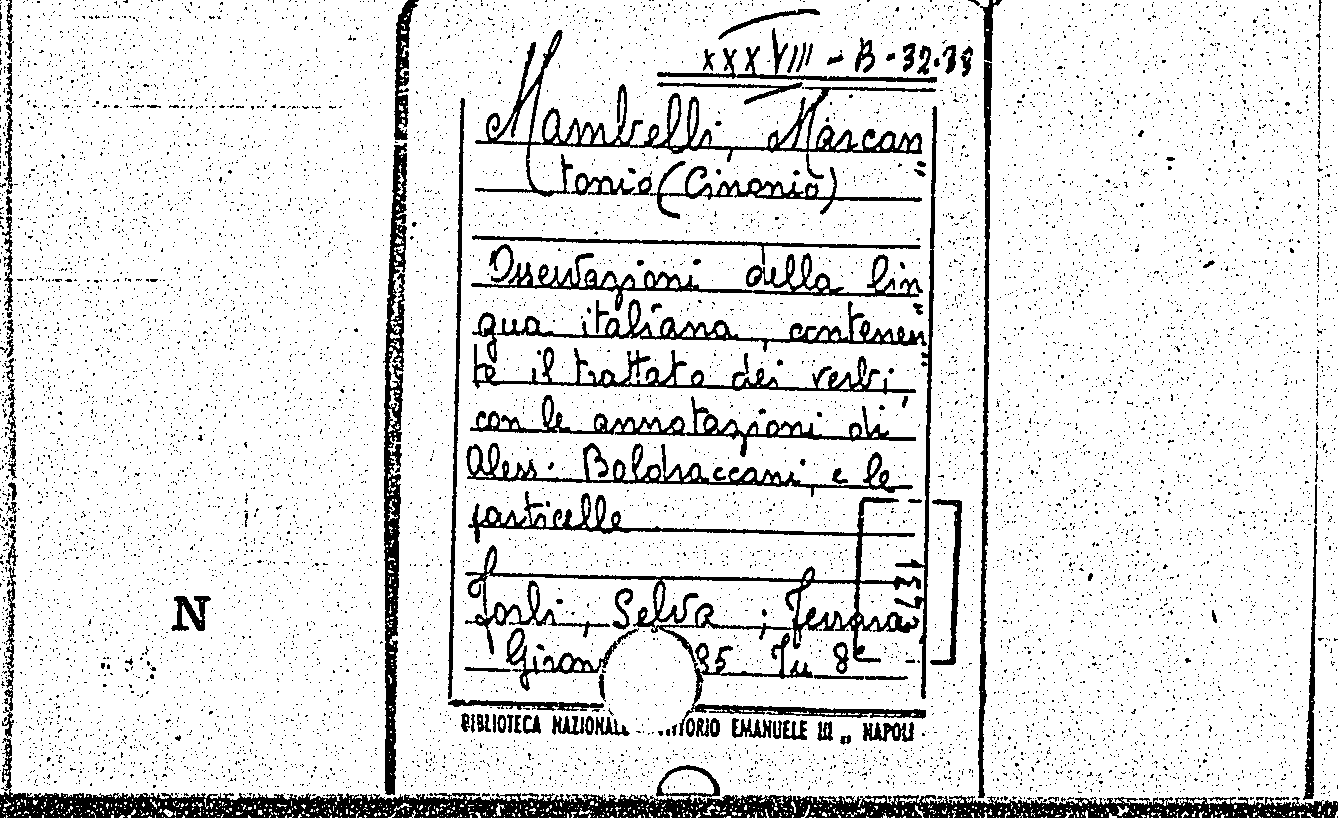 XXXVIII - B - 32.38
Mambelli, Marcan
tonio (Cinonio)
Osservazioni della lin
gua italiana, contenen
te il trattato dei verbi,
con le annotazioni di
Aless. Baldraccani, e le
particelle
Forlì, Selva; Ferrara,
In 8°
N
BIBLIOTECA NAZIONALE EMANUELE III „ NAPOLI